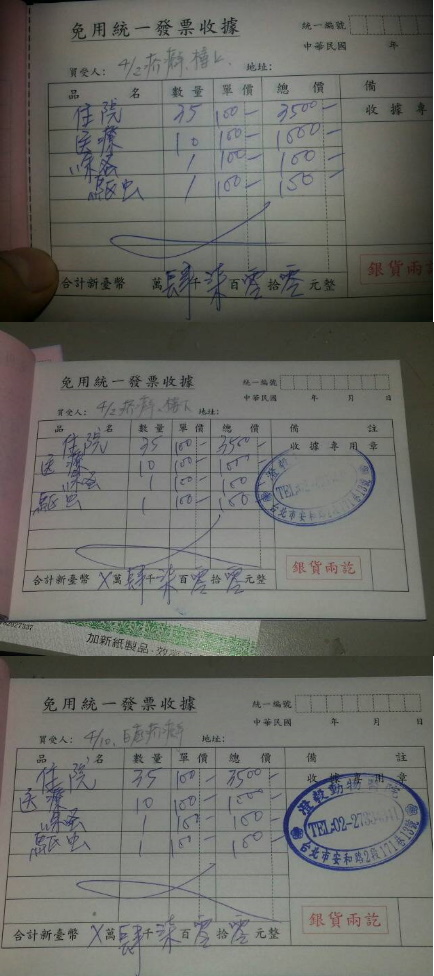 免用統一發票收據
統一編號
中華民國 年
買受人: 4/2 地址:
品 名 數量 單價 總價 備
住院 35 100- 3500- 收據專
医療 10 100- 1000-
除蚤 1 100- 100-
驅虫 1 100- 100-
銀貨兩訖
合計新臺幣 萬肆千柒百零拾零元整
免用統一發票收據
統一編號
中華民國 年 月 日
買受人: 4/2 地址:
品 名 數量 單價 總價 備 註
住院 35 100- 3500- 收據專用章
医療 10 100- 1000-
除蚤 1 100- 100-
驅虫 1 100- 100-
TEL:
台北市安和路
銀貨兩訖
合計新臺幣 X萬肆千柒百零拾零元整
加新紙製品
免用統一發票收據
統一編號
中華民國 年 月 日
買受人: 4/10、 地址:
品 名 數量 單價 總價 備 註
住院 35 100- 3500- 收據專用章
医療 10 100- 1000-
除蚤 1 100- 100-
驅虫 100- 100-
動物
TEL:02-27
台北市安和路2段171巷
銀貨兩訖
合計新臺幣 X萬肆千柒百零拾零元整